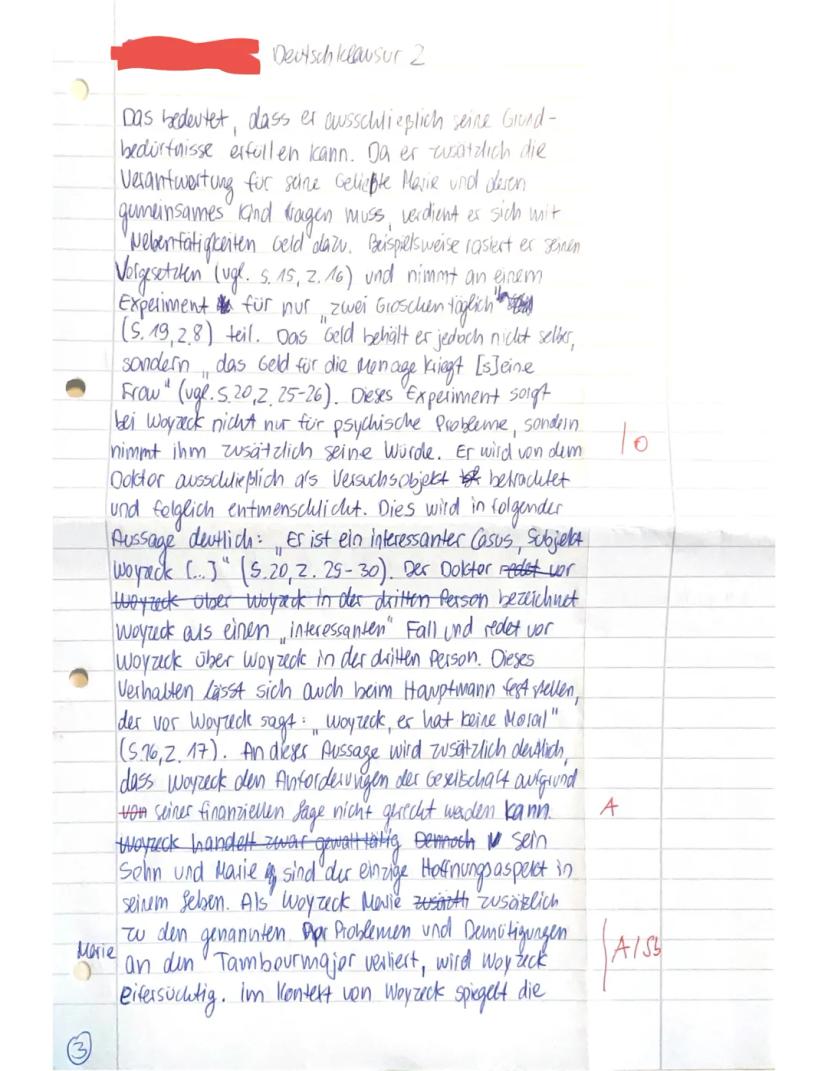 Deutschklausur 2
Das bedeutet, dass er ausschließlich seine Grund-
bedürfnisse erfüllen kann. Da er zusätzlich die
Verantwortung für seine Geliebte Marie und deren
gemeinsames Kind tragen muss, verdient er sich mit
Nebentätigkeiten Geld dazu. Beispielsweise rasiert er seinen
Vorgesetzten (vgl. S. 15, Z. 16) und nimmt an einem
Experiment für nur „zwei Groschen täglich"
(S. 19, Z. 8) teil. Das Geld behält er jedoch nicht selber,
sondern „das Geld für die Menage kriegt [s]eine
Frau" (vgl. S. 20, Z. 25-26). Dieses Experiment sorgt
bei Woyzeck nicht nur für psychische Probleme, sondern
nimmt ihm zusätzlich seine Würde. Er wird von dem
Doktor ausschließlich als Versuchsobjekt betrachtet
und folglich entmenschlicht. Dies wird in folgender
Aussage deutlich: „Er ist ein interessanter Casus, Subjekt
Woyzeck [...]" (S. 20, Z. 29-30). Der Doktor redet vor
Woyzeck über Woyzeck in der dritten Person bezeichnet
Woyzeck als einen „interessanten" Fall und redet vor
Woyzeck über Woyzeck in der dritten Person. Dieses
Verhalten lässt sich auch beim Hauptmann fest stellen,
der vor Woyzeck sagt: „Woyzeck, er hat keine Moral"
(S. 16, Z. 17). An dieser Aussage wird zusätzlich deutlich,
dass Woyzeck den Anforderungen der Gesellschaft aufgrund
von seiner finanziellen Lage nicht gerecht werden kann.
Woyzeck handelt zwar gewalttätig Dennoch sein
Sohn und Marie sind der einzige Hoffnungsaspekt in
seinem Leben. Als Woyzeck Marie zusätzlich
zu den genannten Problemen und Demütigungen
Marie an den Tambourmajor verliert, wird Woyzeck
eifersüchtig. Im Kontext von Woyzeck spiegelt die
3
/o
A
A/Sb